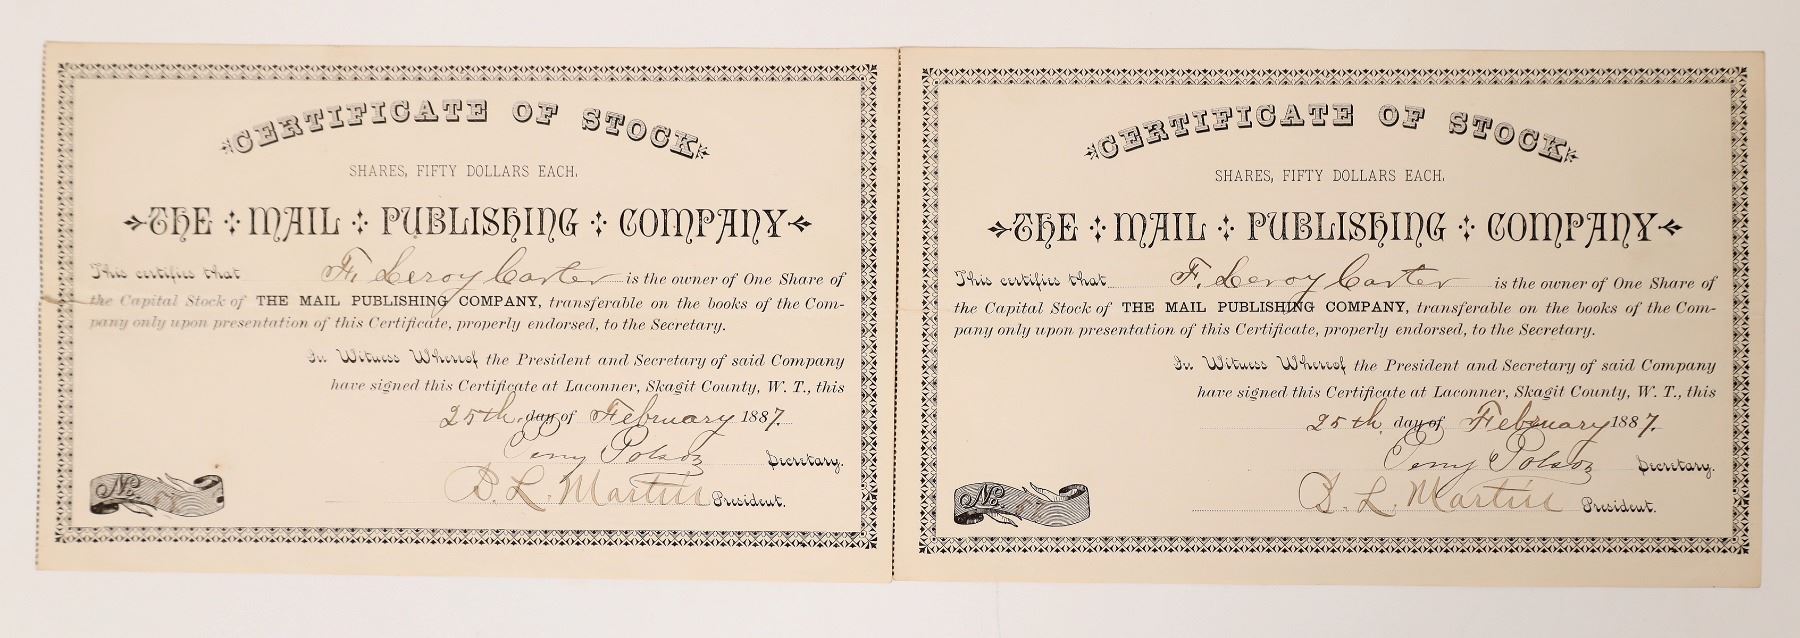 CERTIFICATE OF STOCK
SHARES, FIFTY DOLLARS EACH.
THE MAIL PUBLISHING COMPANY
This certifies that F. Leroy Carter is the owner of One Share of
the Capital Stock of THE MAIL PUBLISHING COMPANY, transferable on the books of the Com-
pany only upon presentation of this Certificate, properly endorsed, to the Secretary.
In Witness Whereof the President and Secretary of said Company
have signed this Certificate at Laconner, Skagit County, W. T., this
25th day of February 1887.
Perry Polson Secretary.
B. L. Martin President.
No.
CERTIFICATE OF STOCK
SHARES, FIFTY DOLLARS EACH.
THE MAIL PUBLISHING COMPANY
This certifies that F. Leroy Carter is the owner of One Share of
the Capital Stock of THE MAIL PUBLISHING COMPANY, transferable on the books of the Com-
pany only upon presentation of this Certificate, properly endorsed, to the Secretary.
In Witness Whereof the President and Secretary of said Company
have signed this Certificate at Laconner, Skagit County, W. T., this
25th day of February 1887.
Perry Polson Secretary.
B. L. Martin President.
No.